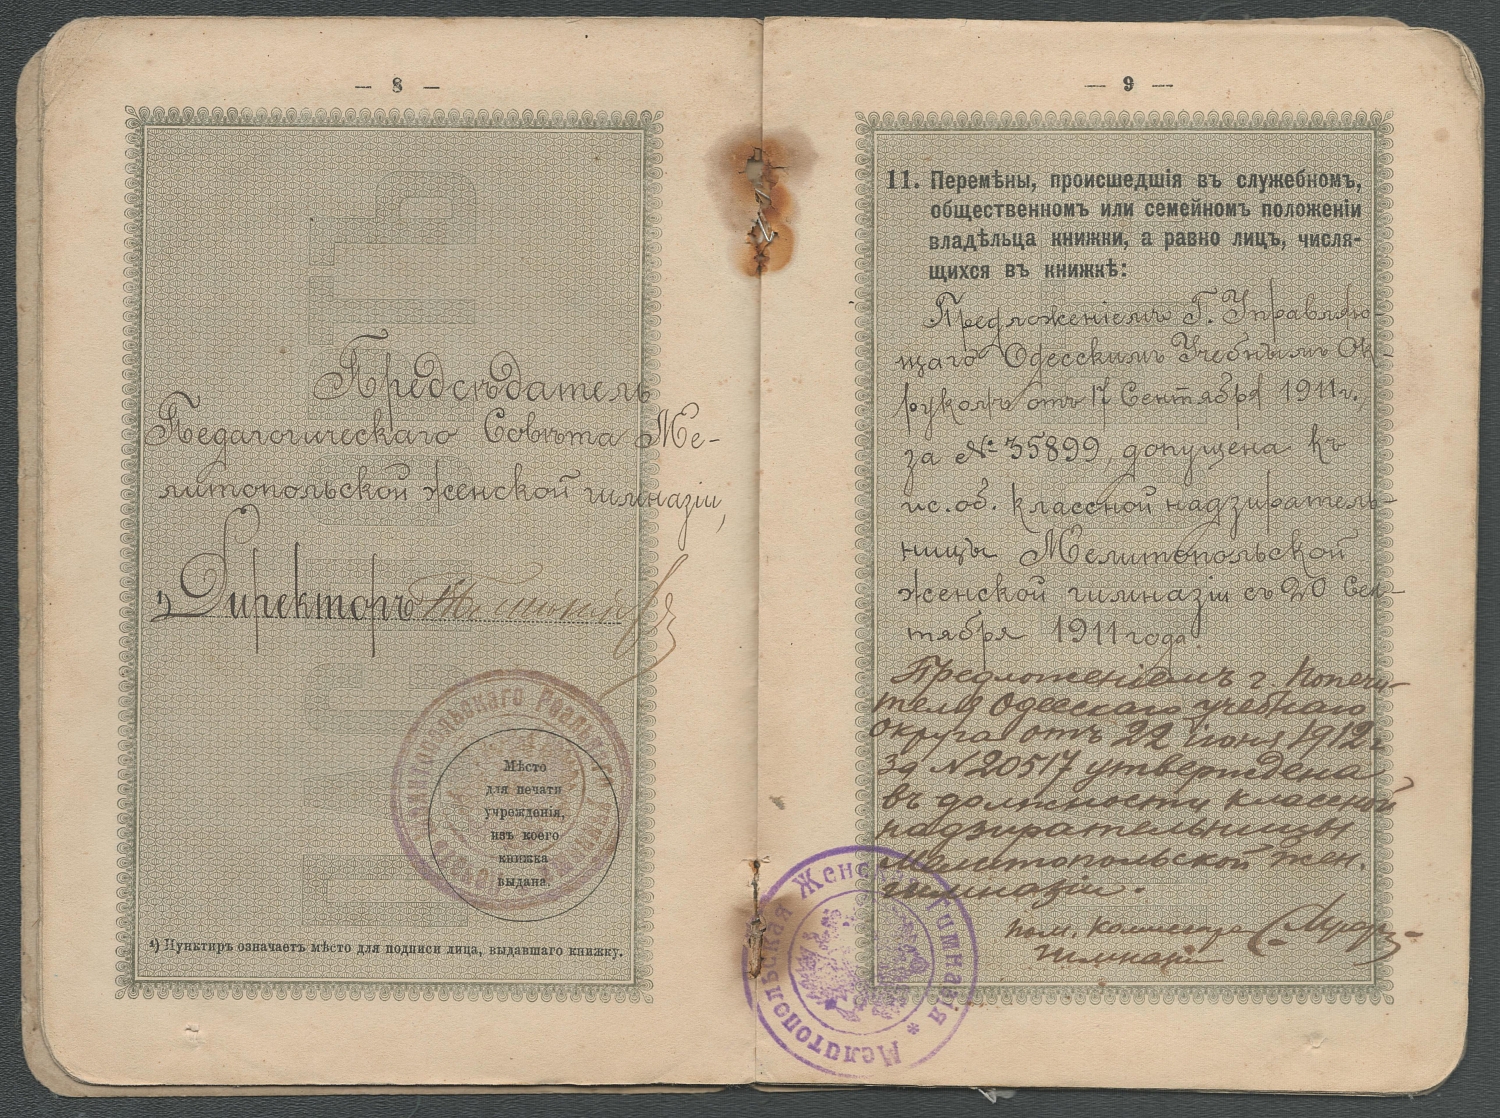 — 8 —
Предсѣдатель
Педагогическаго Совѣта Ме-
литопольской женской гимназіи,
¹) Директоръ
Мѣсто
для печати
учрежденія,
изъ коего
книжка
выдана.
¹) Пунктиръ означаетъ мѣсто для подписи лица, выдавшаго книжку.
— 9 —
11. Перемѣны, происшедшія въ служебномъ,
общественномъ или семейномъ положеніи
владѣльца книжки, а равно лицъ, числя-
щихся въ книжкѣ:
Предложеніемъ Г. Управляю-
щаго Одесскимъ Учебнымъ Ок-
ругомъ отъ 17 Сентября 1911 г.
за № 35899, допущена къ
ис. об. классной надзиратель-
ницы Мелитопольской
женской гимназіи съ 20 Сен-
тября 1911 года.
Предложеніемъ г. Попечи-
теля Одесскаго учебнаго
округа отъ 22 іюня 1912 г.
за № 20517 утверждена
въ должности классной
надзирательницы
Мелитопольской жен.
гимназіи.
гимназіи
Мелитопольская Женская Гимназія *